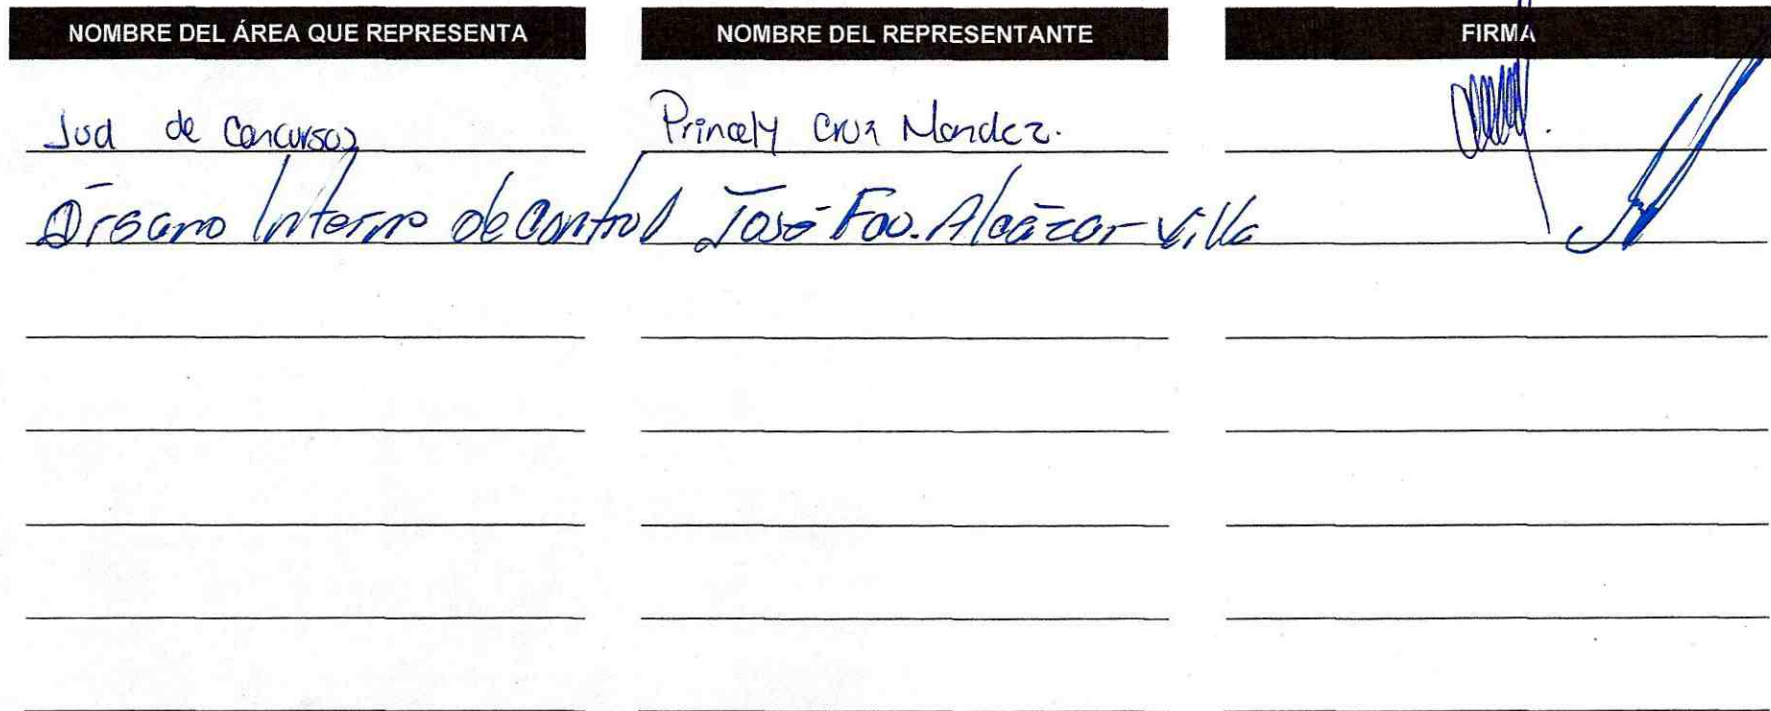 NOMBRE DEL ÁREA QUE REPRESENTA NOMBRE DEL REPRESENTANTE FIRMA
Jud de Concursos Princely Cruz Mendez.
Órgano Interno de Control José Fco. Alcázar Villa